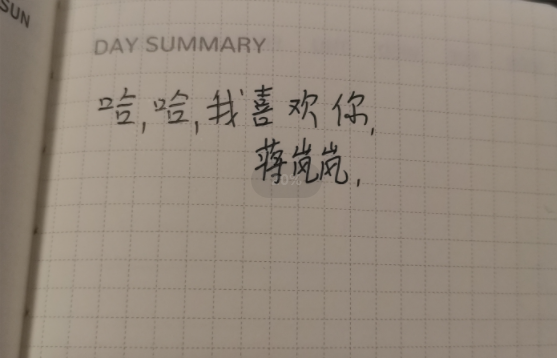 SUN
DAY SUMMARY
哈,哈,我喜欢你,
蒋岚岚,